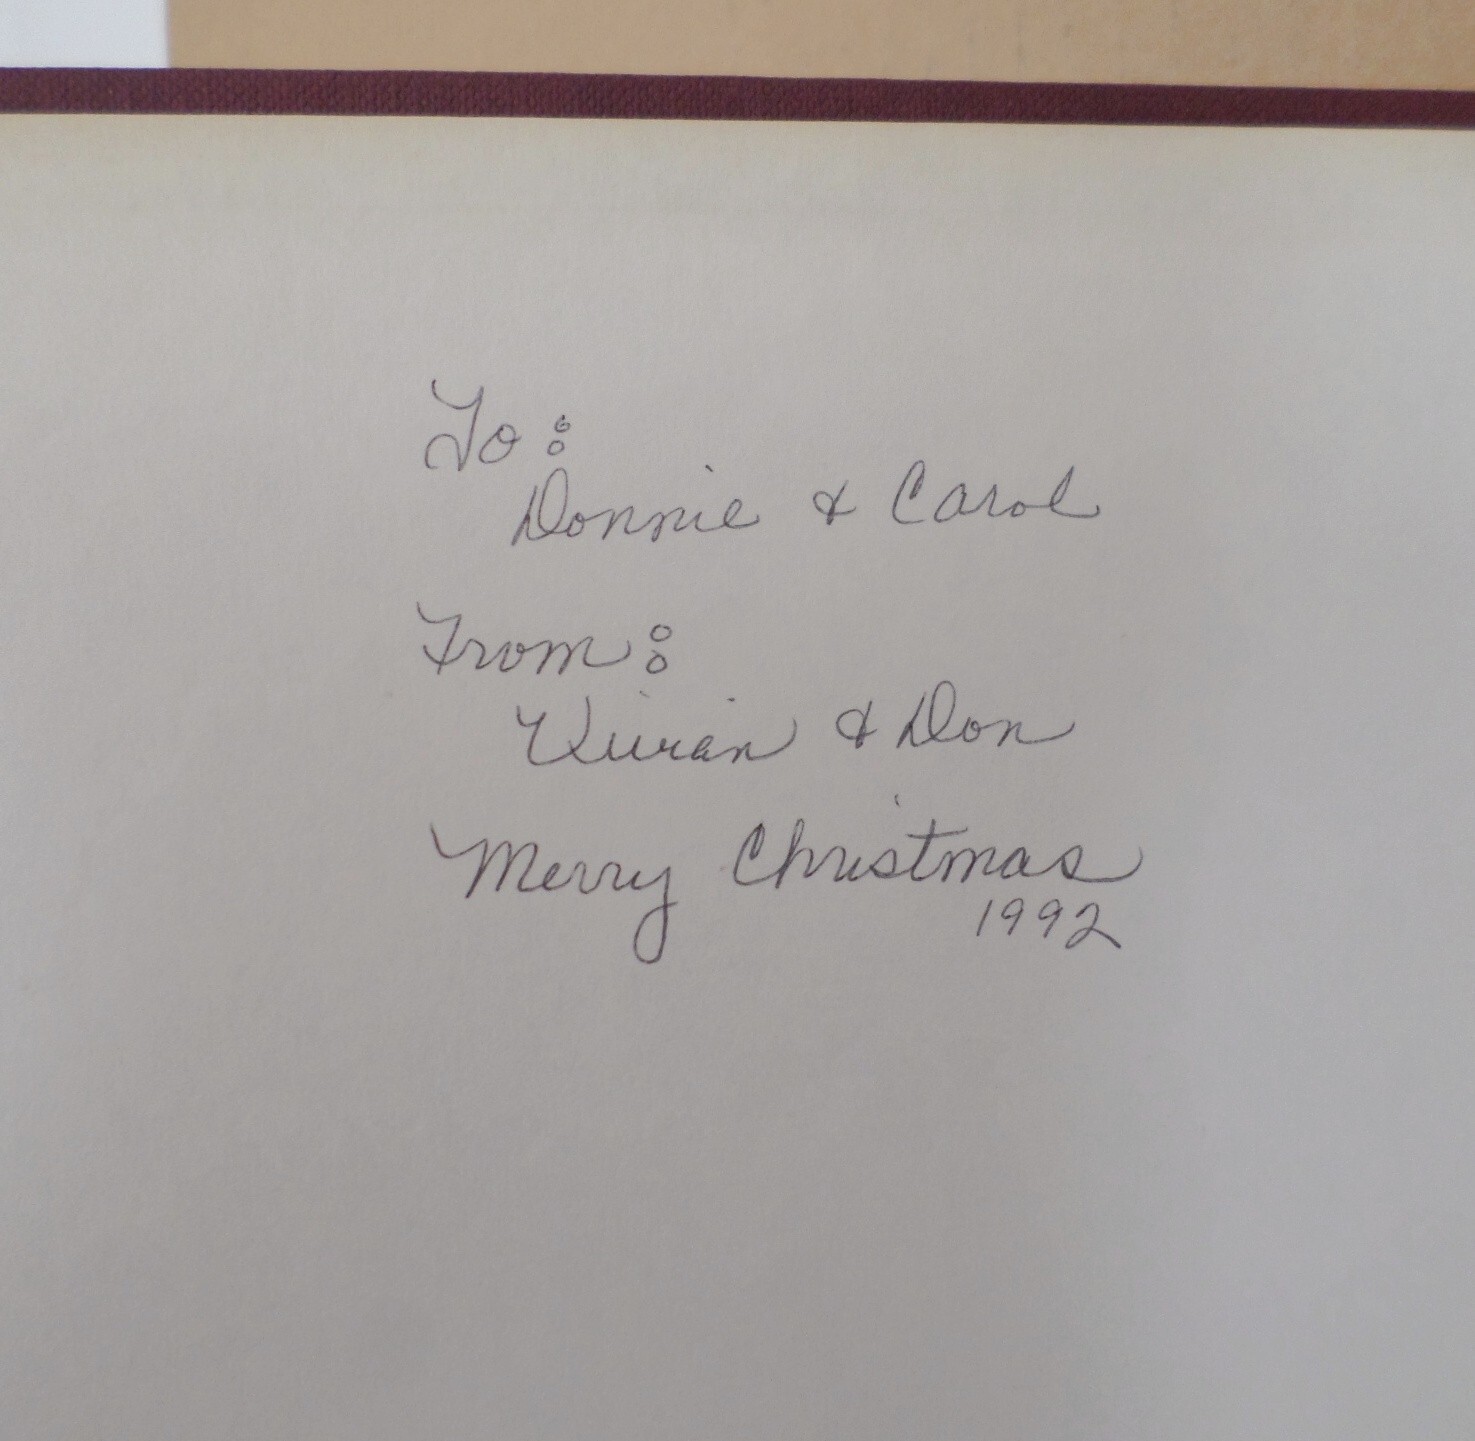 To:
Donnie & Carol
From:
Vivian & Don
Merry Christmas
1992